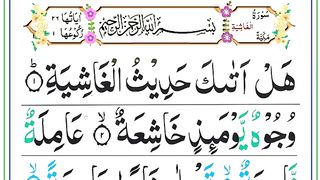 سُوْرَةُ الْغَاشِيَةِ مَكِّيَّةٌ
بِسْمِ اللّٰهِ الرَّحْمٰنِ الرَّحِيْمِ
اٰيَاتُهَا ٢٦ رُكُوْعُهَا ١
هَلْ اَتٰىكَ حَدِيْثُ الْغَاشِيَةِ ۟ؕ ١
وُجُوْهٌ يَّوْمَىِٕذٍ خَاشِعَةٌ ۟ۙ ٢ عَامِلَةٌ